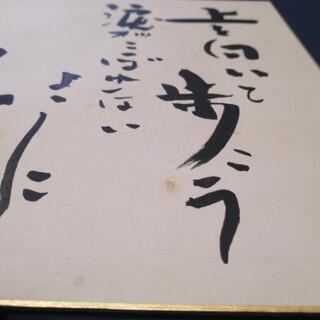 上を向いて
歩こう
涙がこぼれない
ように